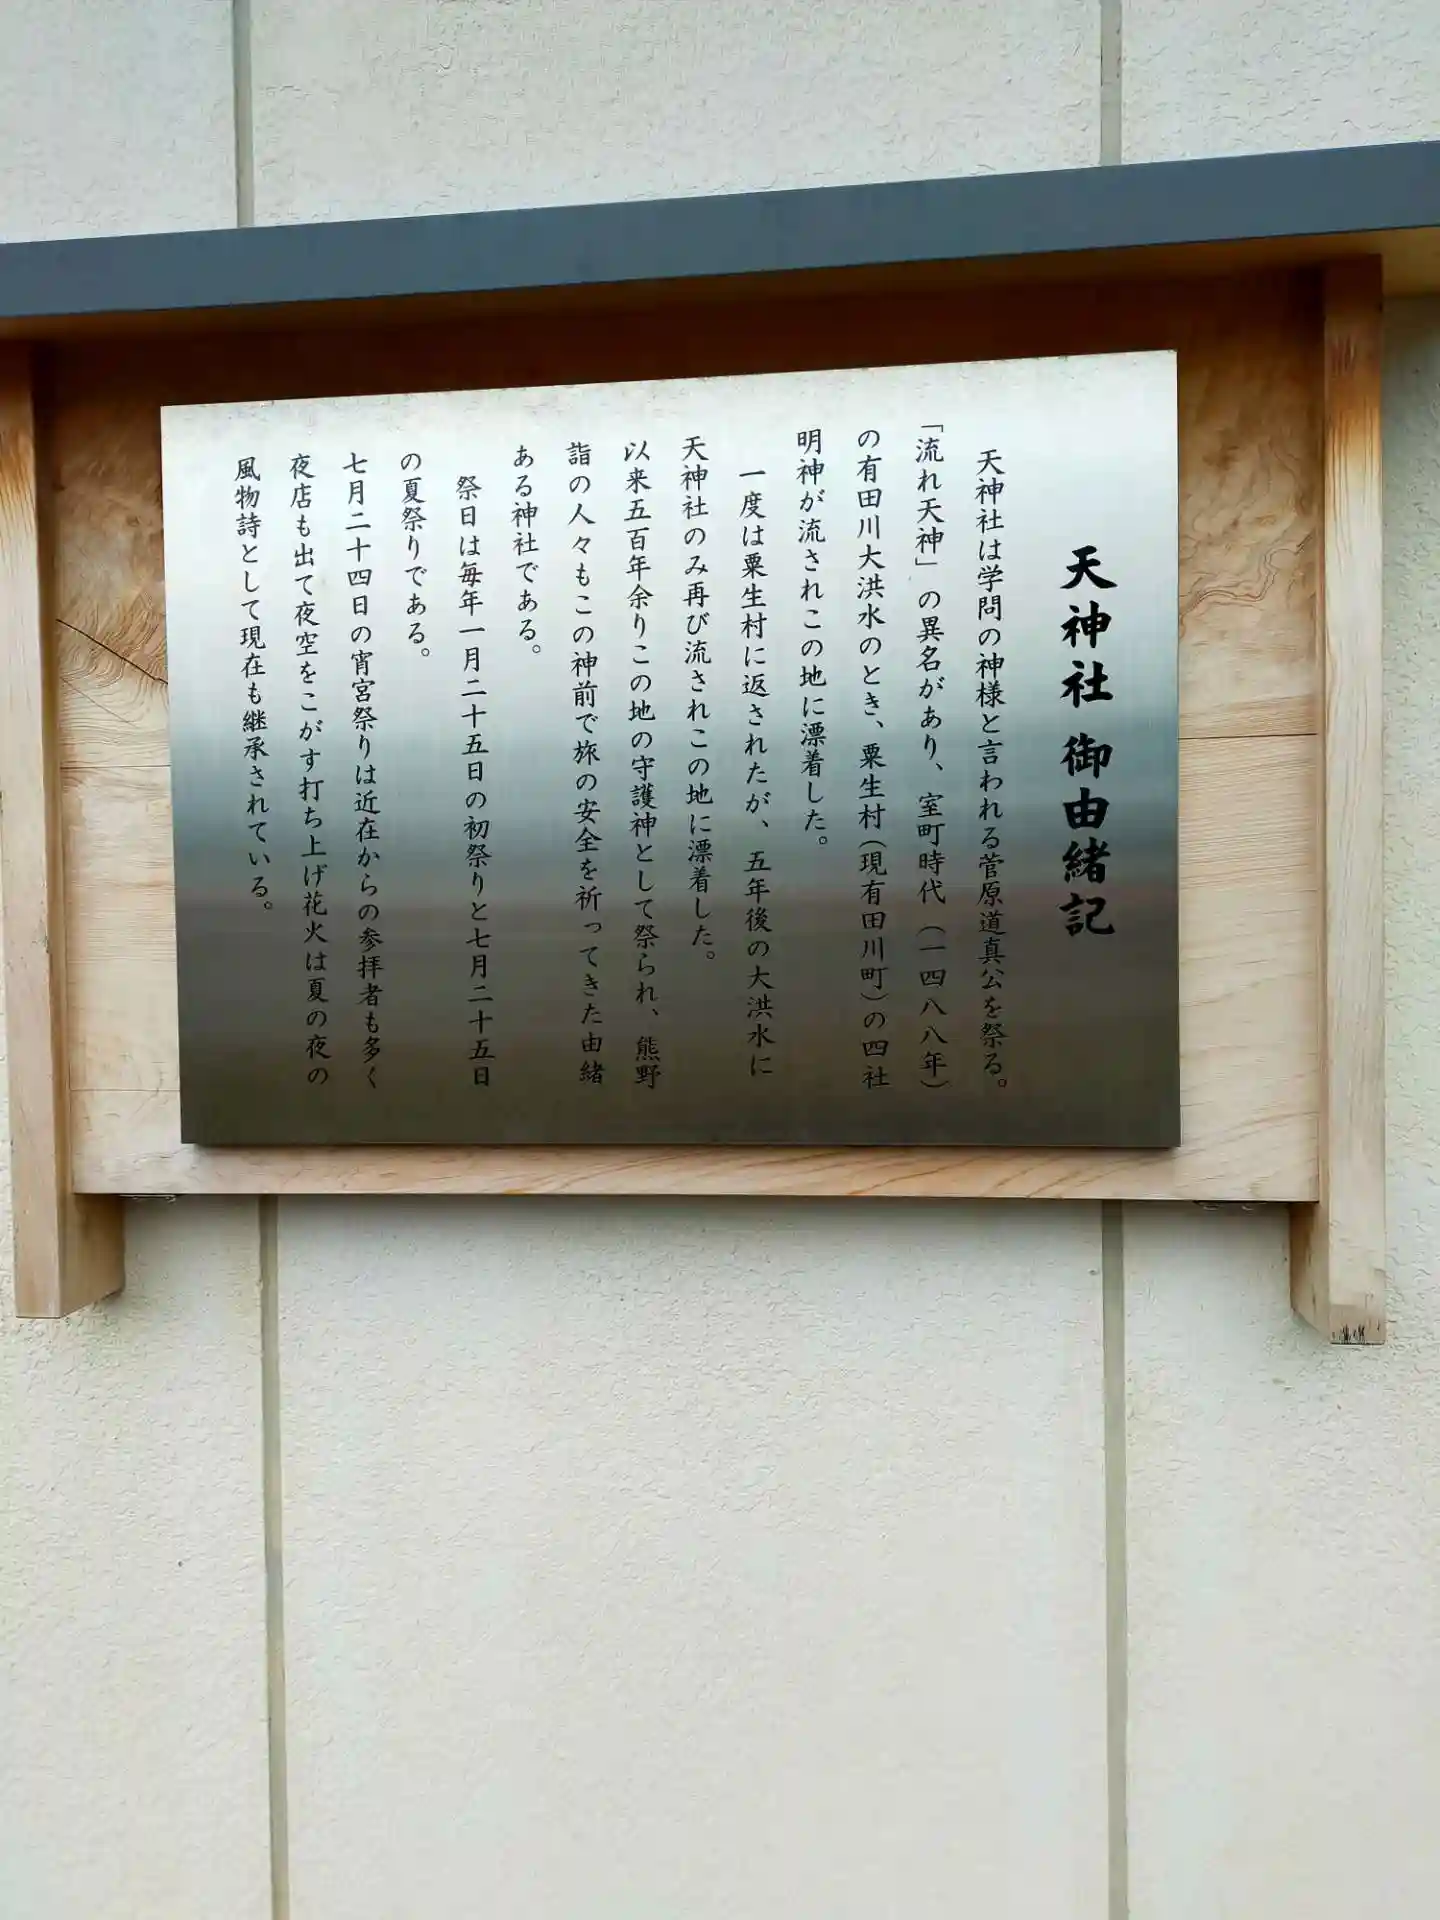 天神社 御由緒記
天神社は学問の神様と言われる菅原道真公を祭る。
「流れ天神」の異名があり、室町時代（一四八八年）
の有田川大洪水のとき、粟生村（現有田川町）の四社
明神が流されこの地に漂着した。
一度は粟生村に返されたが、五年後の大洪水に
天神社のみ再び流されこの地に漂着した。
以来五百年余りこの地の守護神として祭られ、熊野
詣の人々もこの神前で旅の安全を祈ってきた由緒
ある神社である。
祭日は毎年一月二十五日の初祭りと七月二十五日
の夏祭りである。
七月二十四日の宵宮祭りは近在からの参拝者も多く
夜店も出て夜空をこがす打ち上げ花火は夏の夜の
風物詩として現在も継承されている。